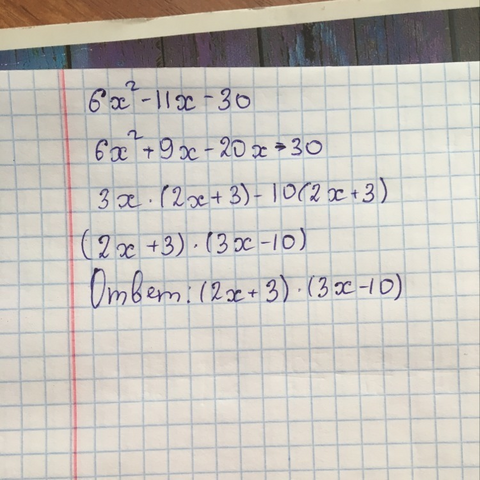 6x²-11x-30
6x²+9x-20x-30
3x·(2x+3)-10(2x+3)
(2x+3)·(3x-10)
Ответ: (2x+3)·(3x-10)